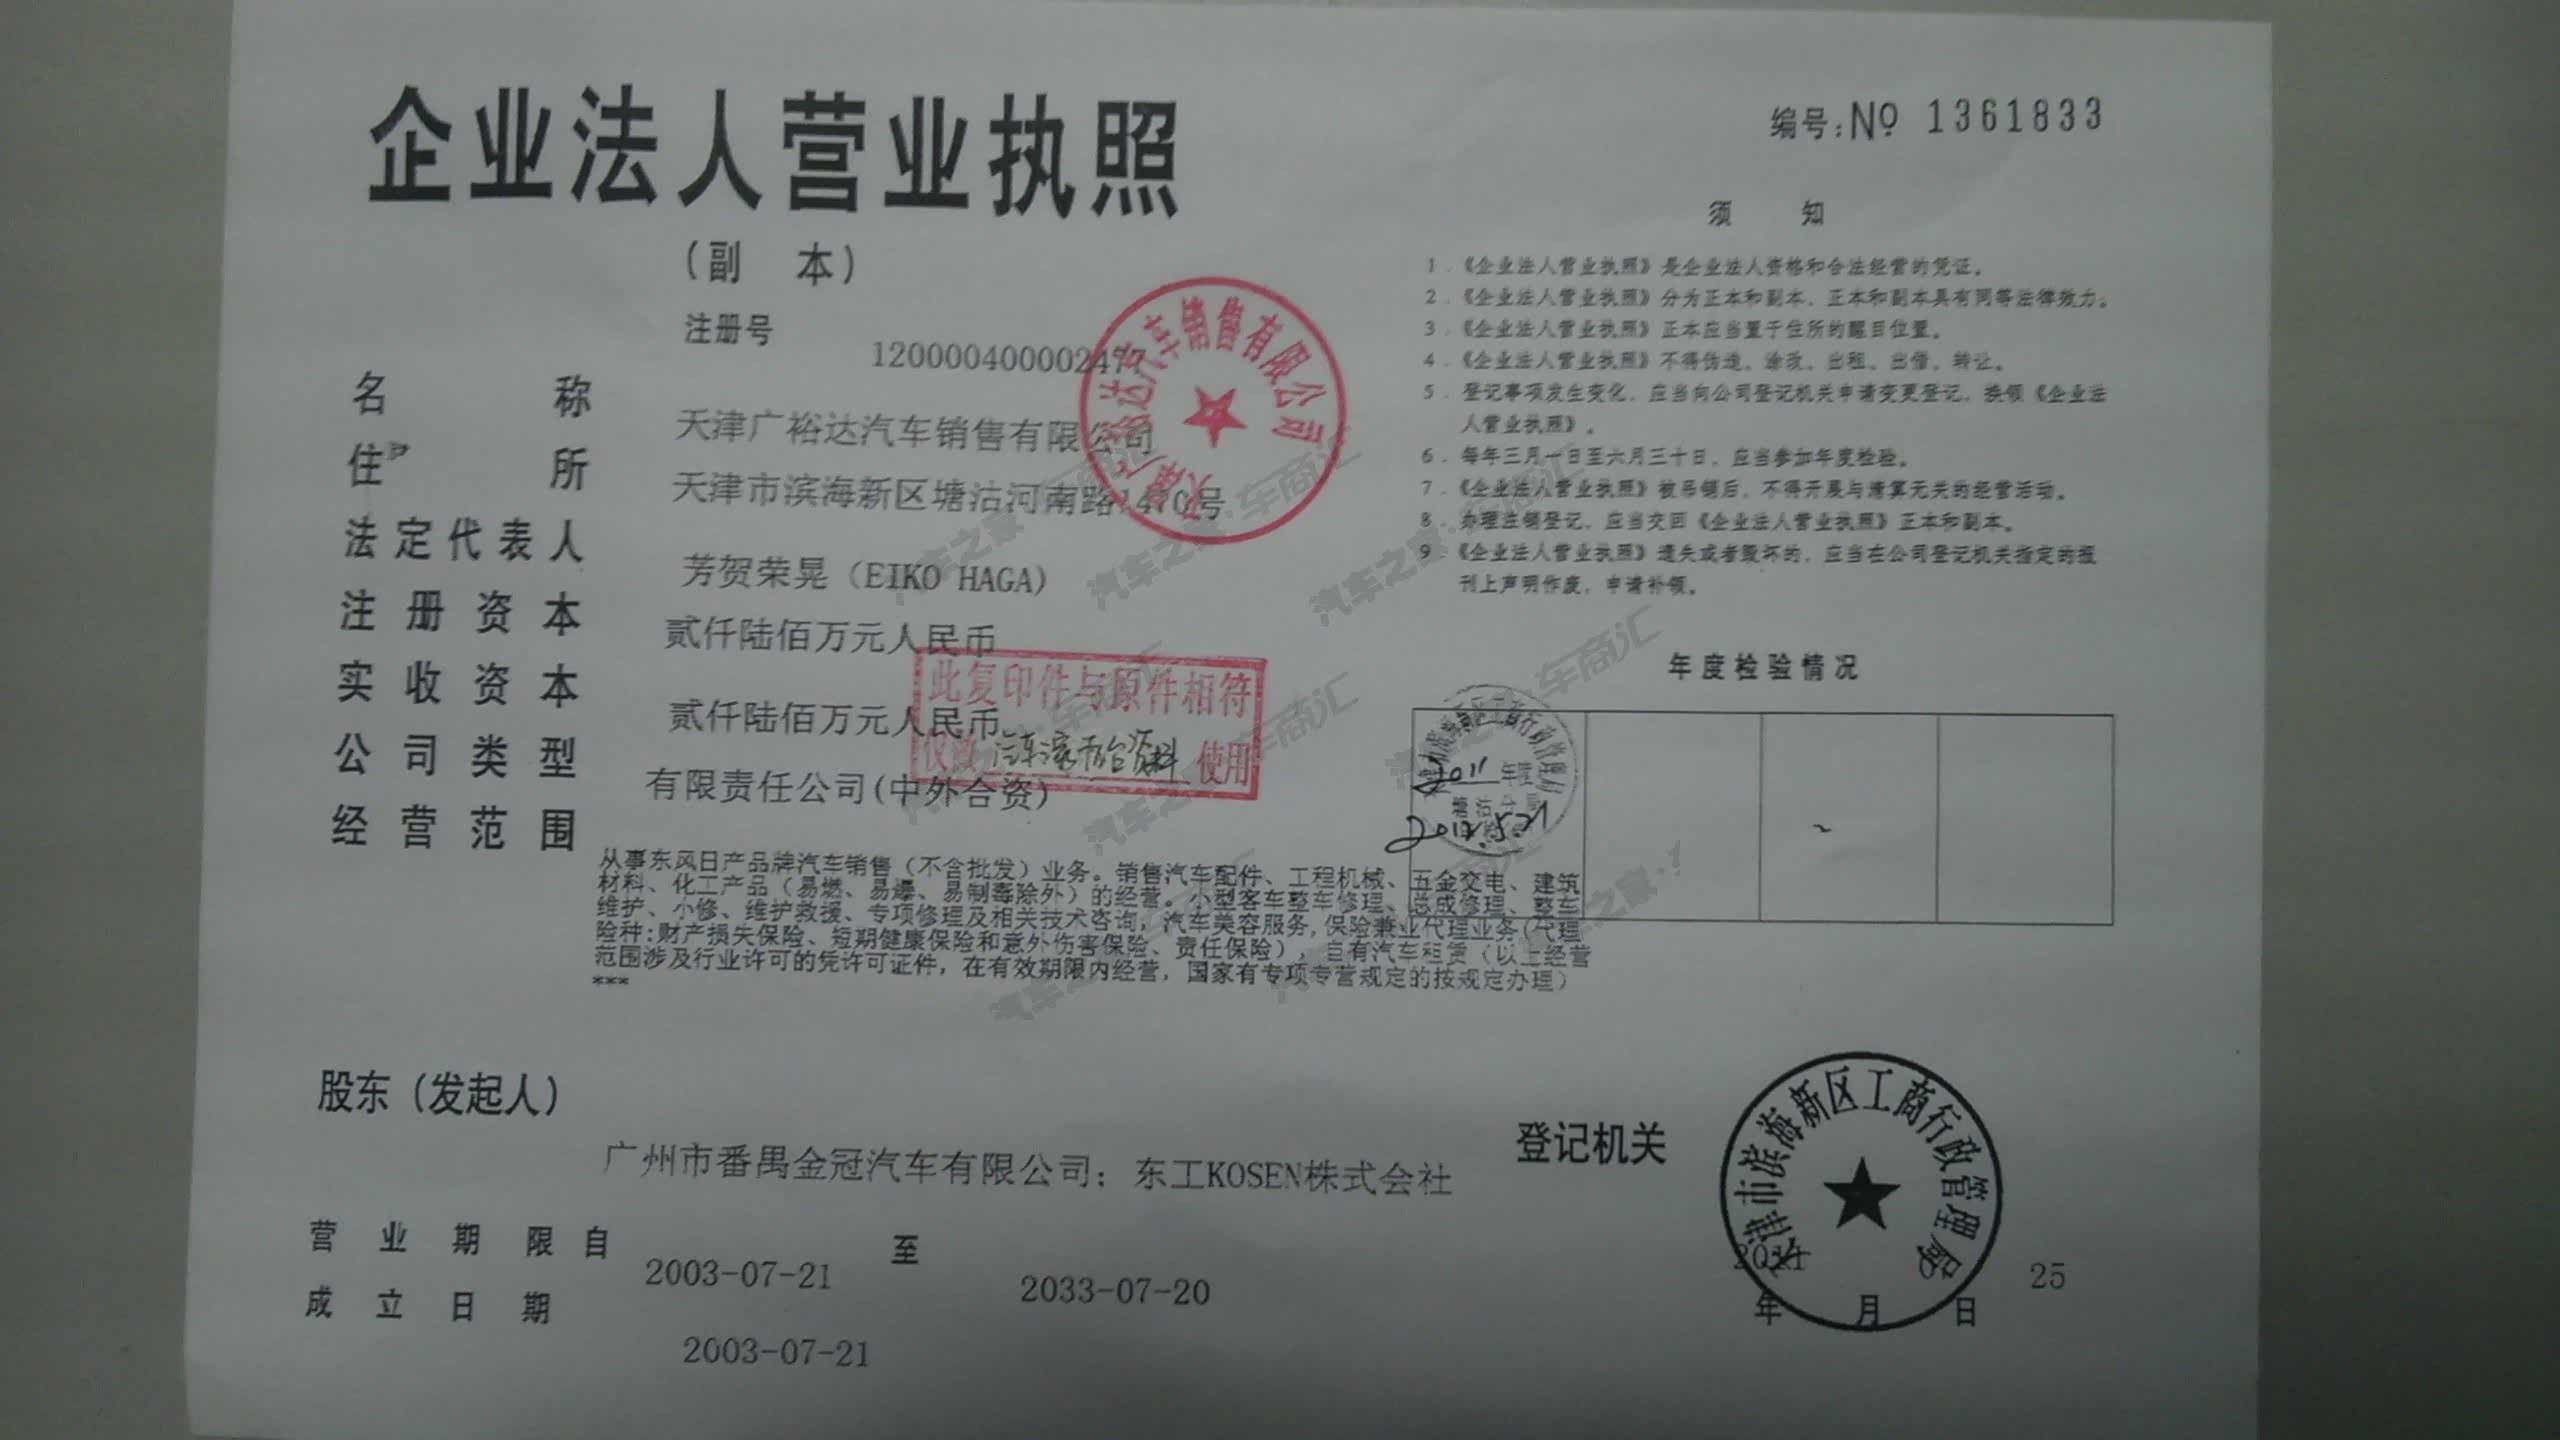 企业法人营业执照
（副 本）
编号：№ 1361833
注册号 120000400002477
名 称 天津广裕达汽车销售有限公司
住 所 天津市滨海新区塘沽河南路1470号
法定代表人 芳贺荣晃（EIKO HAGA）
注册资本 贰仟陆佰万元人民币
实收资本 贰仟陆佰万元人民币
公司类型 有限责任公司(中外合资)
经营范围
从事东风日产品牌汽车销售（不含批发）业务。销售汽车配件、工程机械、五金交电、建筑
材料、化工产品（易燃、易爆、易制毒除外）的经营。小型客车整车修理、总成修理、整车
维护、小修、维护救援、专项修理及相关技术咨询，汽车美容服务,保险兼业代理业务(代理
险种:财产损失保险、短期健康保险和意外伤害保险、责任保险)，自有汽车租赁（以上经营
范围涉及行业许可的凭许可证件，在有效期限内经营，国家有专项专营规定的按规定办理）
***
股东（发起人）
广州市番禺金冠汽车有限公司；东工KOSEN株式会社
营业期限自 2003-07-21 至 2033-07-20
成立日期 2003-07-21
天津广裕达汽车销售有限公司
此复印件与原件相符
使用
须 知
1．《企业法人营业执照》是企业法人资格和合法经营的凭证。
2．《企业法人营业执照》分为正本和副本，正本和副本具有同等法律效力。
3．《企业法人营业执照》正本应当置于住所的醒目位置。
4．《企业法人营业执照》不得伪造、涂改、出租、出借、转让。
5．登记事项发生变化，应当向公司登记机关申请变更登记，换领《企业法
人营业执照》。
6．每年三月一日至六月三十日，应当参加年度检验。
7．《企业法人营业执照》被吊销后，不得开展与清算无关的经营活动。
8．办理注销登记，应当交回《企业法人营业执照》正本和副本。
9．《企业法人营业执照》遗失或者毁坏的，应当在公司登记机关指定的报
刊上声明作废，申请补领。
年度检验情况
2011 年
塘沽分局
2012.5.21
登记机关
天津市滨海新区工商行政管理局
25
年 月 日
汽车之家·车商汇